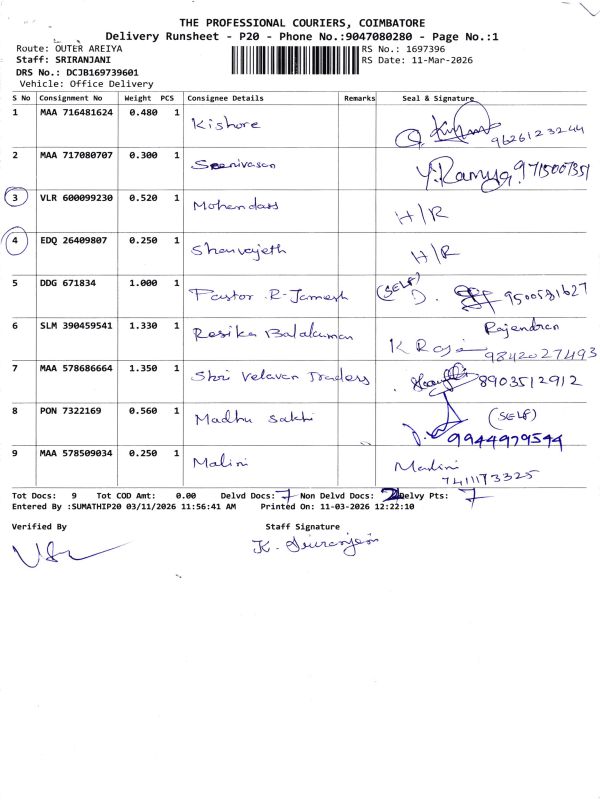 THE PROFESSIONAL COURIERS, COIMBATORE
Delivery Runsheet - P20 - Phone No.:9047080280 - Page No.:1
Route: OUTER AREIYA
RS No.: 1697396
Staff: SRIRANJANI
RS Date: 11-Mar-2026
DRS No.: DCJB169739601
Vehicle: Office Delivery
S No Consignment No Weight PCS Consignee Details Remarks Seal & Signature
1 MAA 716481624 0.480 1 Kishore 9626123244
2 MAA 717080707 0.300 1 Sreenivasan Y. Ramya 9715007351
3 VLR 600099230 0.520 1 Mohandass H/R
4 EDQ 26409807 0.250 1 H/R
5 DDG 671834 1.000 1 Pastor R. (SELF) D. 9500581627
6 SLM 390459541 1.330 1 Resika Balakuman K Raja Rajendran 9842027493
7 MAA 578686664 1.350 1 Shri Velavan Traders 8903512912
8 PON 7322169 0.560 1 Madhu Sakhi (SELF) 9944979544
9 MAA 578509034 0.250 1 Malini Malini 7411173325
Tot Docs: 9 Tot COD Amt: 0.00 Delvd Docs: 7 Non Delvd Docs: 2 Delvy Pts: 7
Entered By :SUMATHIP20 03/11/2026 11:56:41 AM Printed On: 11-03-2026 12:22:10
Verified By Staff Signature
K. Sriranjani